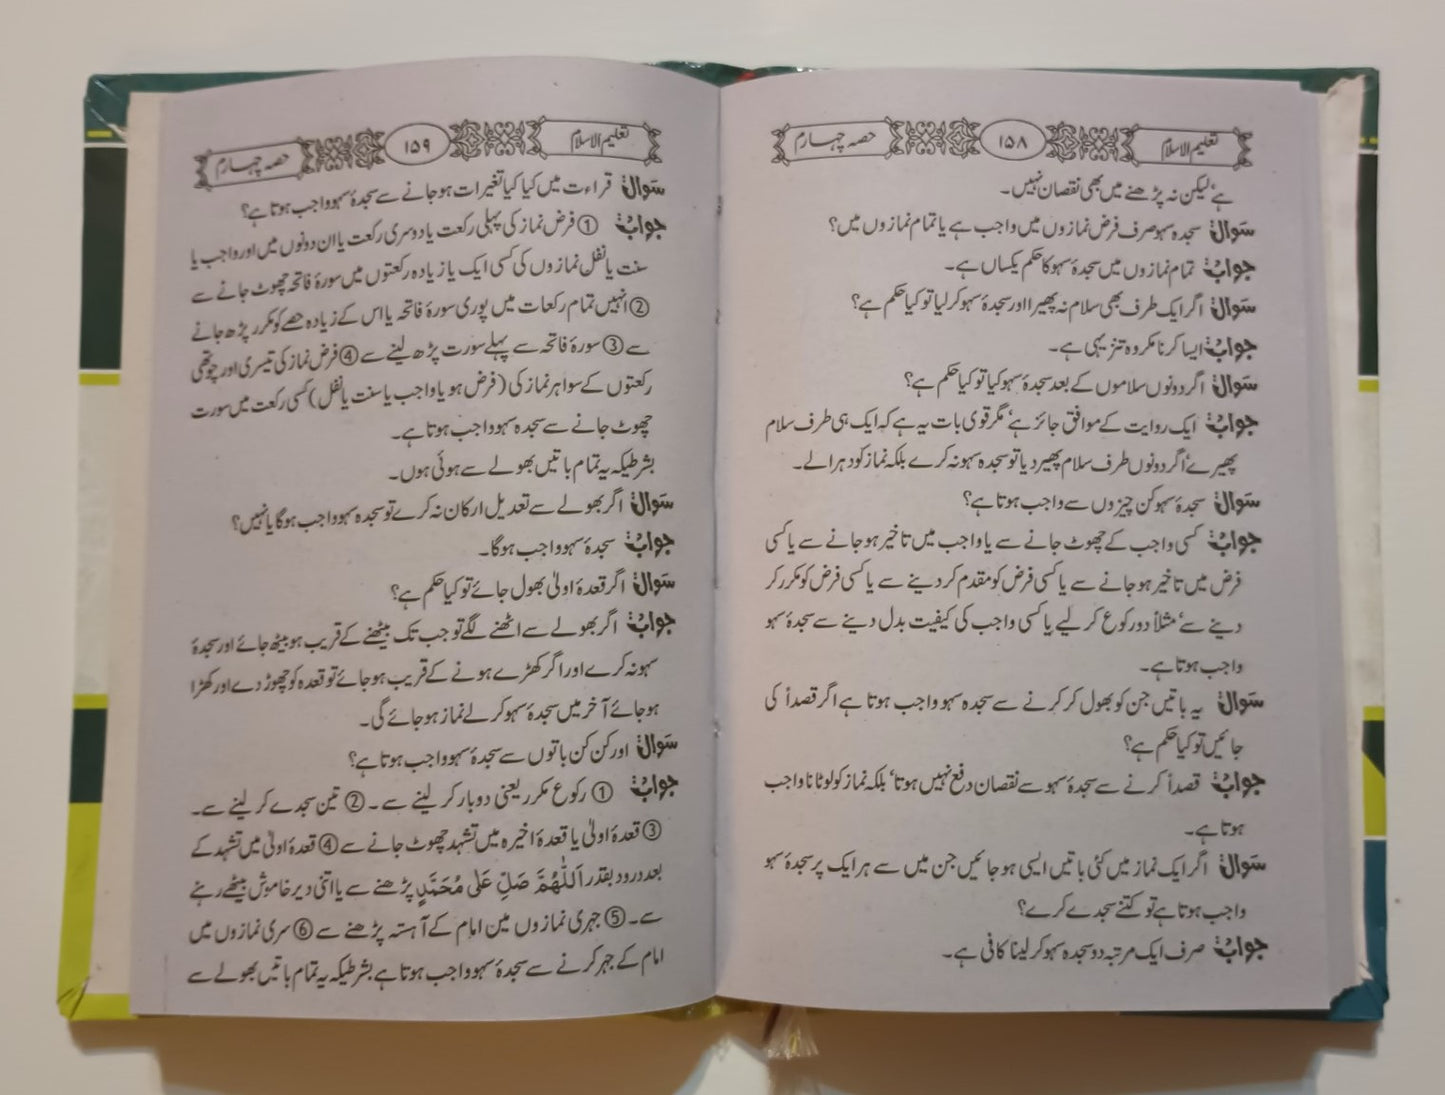 تعلیم الاسلام ۱۵۸ حصہ چہارم
ہے، لیکن نہ پڑھنے میں بھی نقصان نہیں۔
سَوال: سجدہ سہو صرف فرض نمازوں میں واجب ہے یا تمام نمازوں میں؟
جواب: تمام نمازوں میں سجدۂ سہو کا حکم یکساں ہے۔
سَوال: اگر ایک طرف بھی سلام نہ پھیرا اور سجدۂ سہو کر لیا تو کیا حکم ہے؟
جواب: ایسا کرنا مکروہ تنزیہی ہے۔
سَوال: اگر دونوں سلاموں کے بعد سجدہ سہو کیا تو کیا حکم ہے؟
جواب: ایک روایت کے موافق جائز ہے، مگر قوی بات یہ ہے کہ ایک ہی طرف سلام
پھیرے، اگر دونوں طرف سلام پھیر دیا تو سجدہ سہو نہ کرے بلکہ نماز کو دہرالے۔
سَوال: سجدۂ سہو کن چیزوں سے واجب ہوتا ہے؟
جواب: کسی واجب کے چھوٹ جانے سے یا واجب میں تاخیر ہو جانے سے یا کسی
فرض میں تاخیر ہو جانے سے یا کسی فرض کو مقدم کر دینے سے یا کسی فرض کو مکرر کر
دینے سے، مثلاً دو رکوع کر لیے یا کسی واجب کی کیفیت بدل دینے سے سجدۂ سہو
واجب ہوتا ہے۔
سَوال: یہ باتیں جن کو بھول کر کرنے سے سجدہ سہو واجب ہوتا ہے اگر قصداً کی
جائیں تو کیا حکم ہے؟
جواب: قصداً کرنے سے سجدۂ سہو سے نقصان دفع نہیں ہوتا، بلکہ نماز کو لوٹانا واجب
ہوتا ہے۔
سَوال: اگر ایک نماز میں کئی باتیں ایسی ہو جائیں جن میں سے ہر ایک پر سجدۂ سہو
واجب ہوتا ہے تو کتنے سجدے کرے؟
جواب: صرف ایک مرتبہ دو سجدہ سہو کر لینا کافی ہے۔
تعلیم الاسلام ۱۵۹ حصہ چہارم
سَوال: قراءت میں کیا کیا تغیرات ہو جانے سے سجدۂ سہو واجب ہوتا ہے؟
جواب: ① فرض نماز کی پہلی رکعت یا دوسری رکعت یا ان دونوں میں اور واجب یا
سنت یا نفل نمازوں کی کسی ایک یا زیادہ رکعتوں میں سورۂ فاتحہ چھوٹ جانے سے
② انہیں تمام رکعات میں پوری سورۂ فاتحہ یا اس کے زیادہ حصے کو مکرر پڑھ جانے
سے ③ سورۂ فاتحہ سے پہلے سورت پڑھ لینے سے ④ فرض نماز کی تیسری اور چوتھی
رکعتوں کے سوا ہر نماز کی (فرض ہو یا واجب یا سنت یا نفل) کسی رکعت میں سورت
چھوٹ جانے سے سجدہ سہو واجب ہوتا ہے۔
بشرطیکہ یہ تمام باتیں بھولے سے ہوئی ہوں۔
سَوال: اگر بھولے سے تعدیل ارکان نہ کرے تو سجدہ سہو واجب ہوگا یا نہیں؟
جواب: سجدۂ سہو واجب ہوگا۔
سَوال: اگر قعدۂ اولیٰ بھول جائے تو کیا حکم ہے؟
جواب: اگر بھولے سے اٹھنے لگے تو جب تک بیٹھنے کے قریب ہو بیٹھ جائے اور سجدۂ
سہو نہ کرے اور اگر کھڑے ہونے کے قریب ہو جائے تو قعدہ کو چھوڑ دے اور کھڑا
ہو جائے آخر میں سجدۂ سہو کر لے نماز ہو جائے گی۔
سَوال: اور کن کن باتوں سے سجدۂ سہو واجب ہوتا ہے؟
جواب: ① رکوع مکرر یعنی دوبار کر لینے سے۔ ② تین سجدے کر لینے سے۔
③ قعدۂ اولیٰ یا قعدۂ اخیرہ میں تشہد چھوٹ جانے سے ④ قعدۂ اولیٰ میں تشہد کے
بعد درود بقدر اَللّٰهُمَّ صَلِّ عَلٰى مُحَمَّدٍ پڑھنے سے یا اتنی دیر خاموش بیٹھے رہنے
سے۔ ⑤ جہری نمازوں میں امام کے آہستہ پڑھنے سے ⑥ سری نمازوں میں
امام کے جہر کرنے سے سجدۂ سہو واجب ہوتا ہے بشرطیکہ یہ تمام باتیں بھولے سے